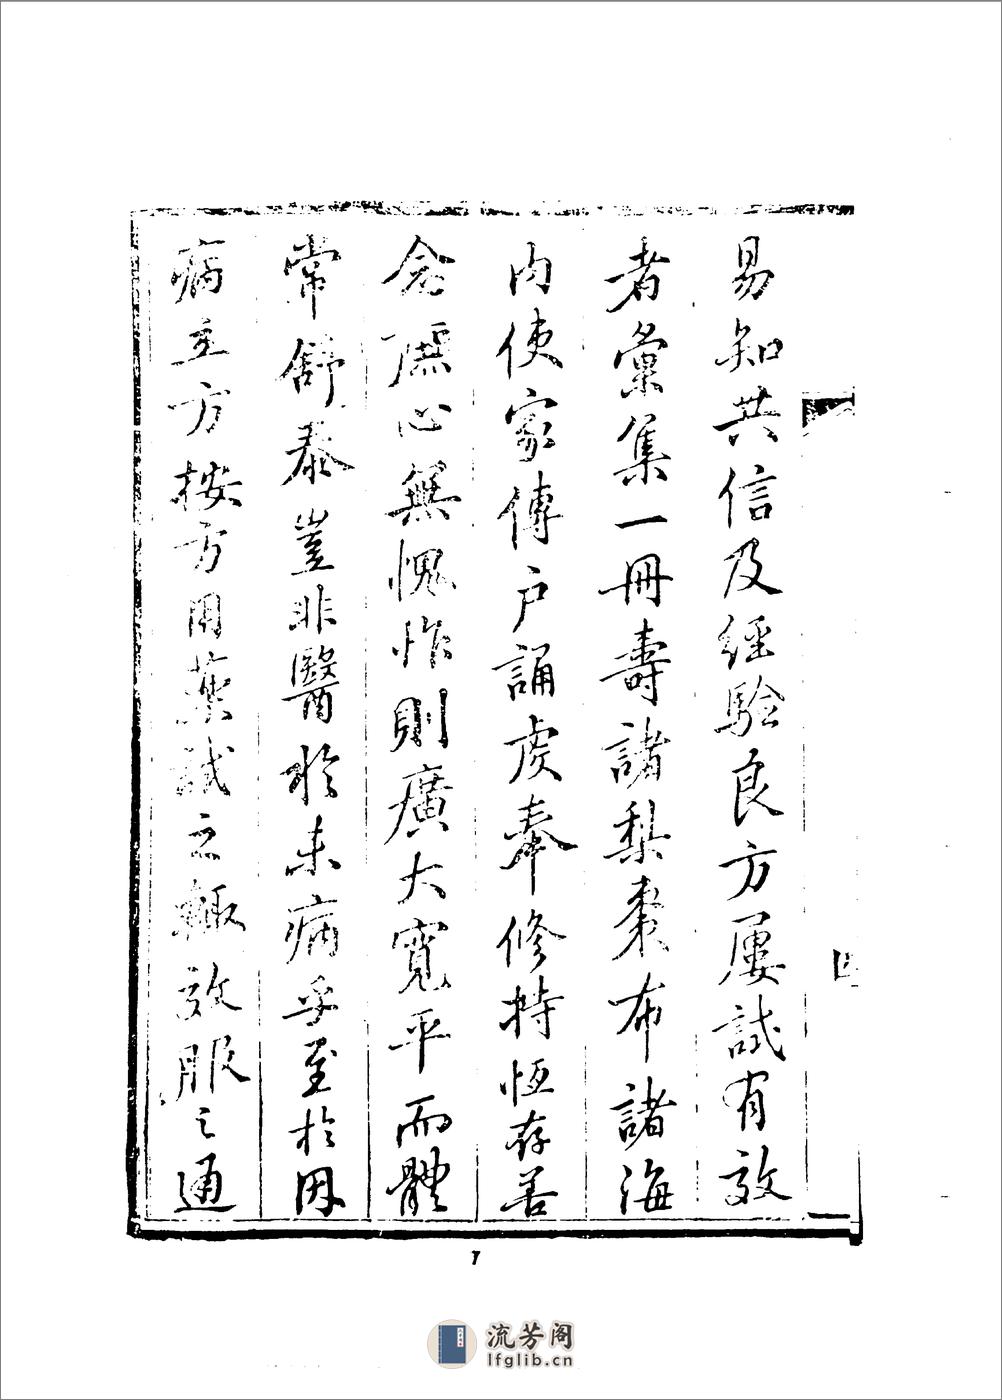 易知共信及經驗良方屢試有效
者彙集一冊壽諸梨棗布諸海
內使家傳戶誦虔奉修持恆存善
念庶心無愧怍則廣大寬平而體
常舒泰豈非醫於未病乎至於因
病立方按方用藥試之輒效服之通
四
7
流芳阁
lfglib.cn